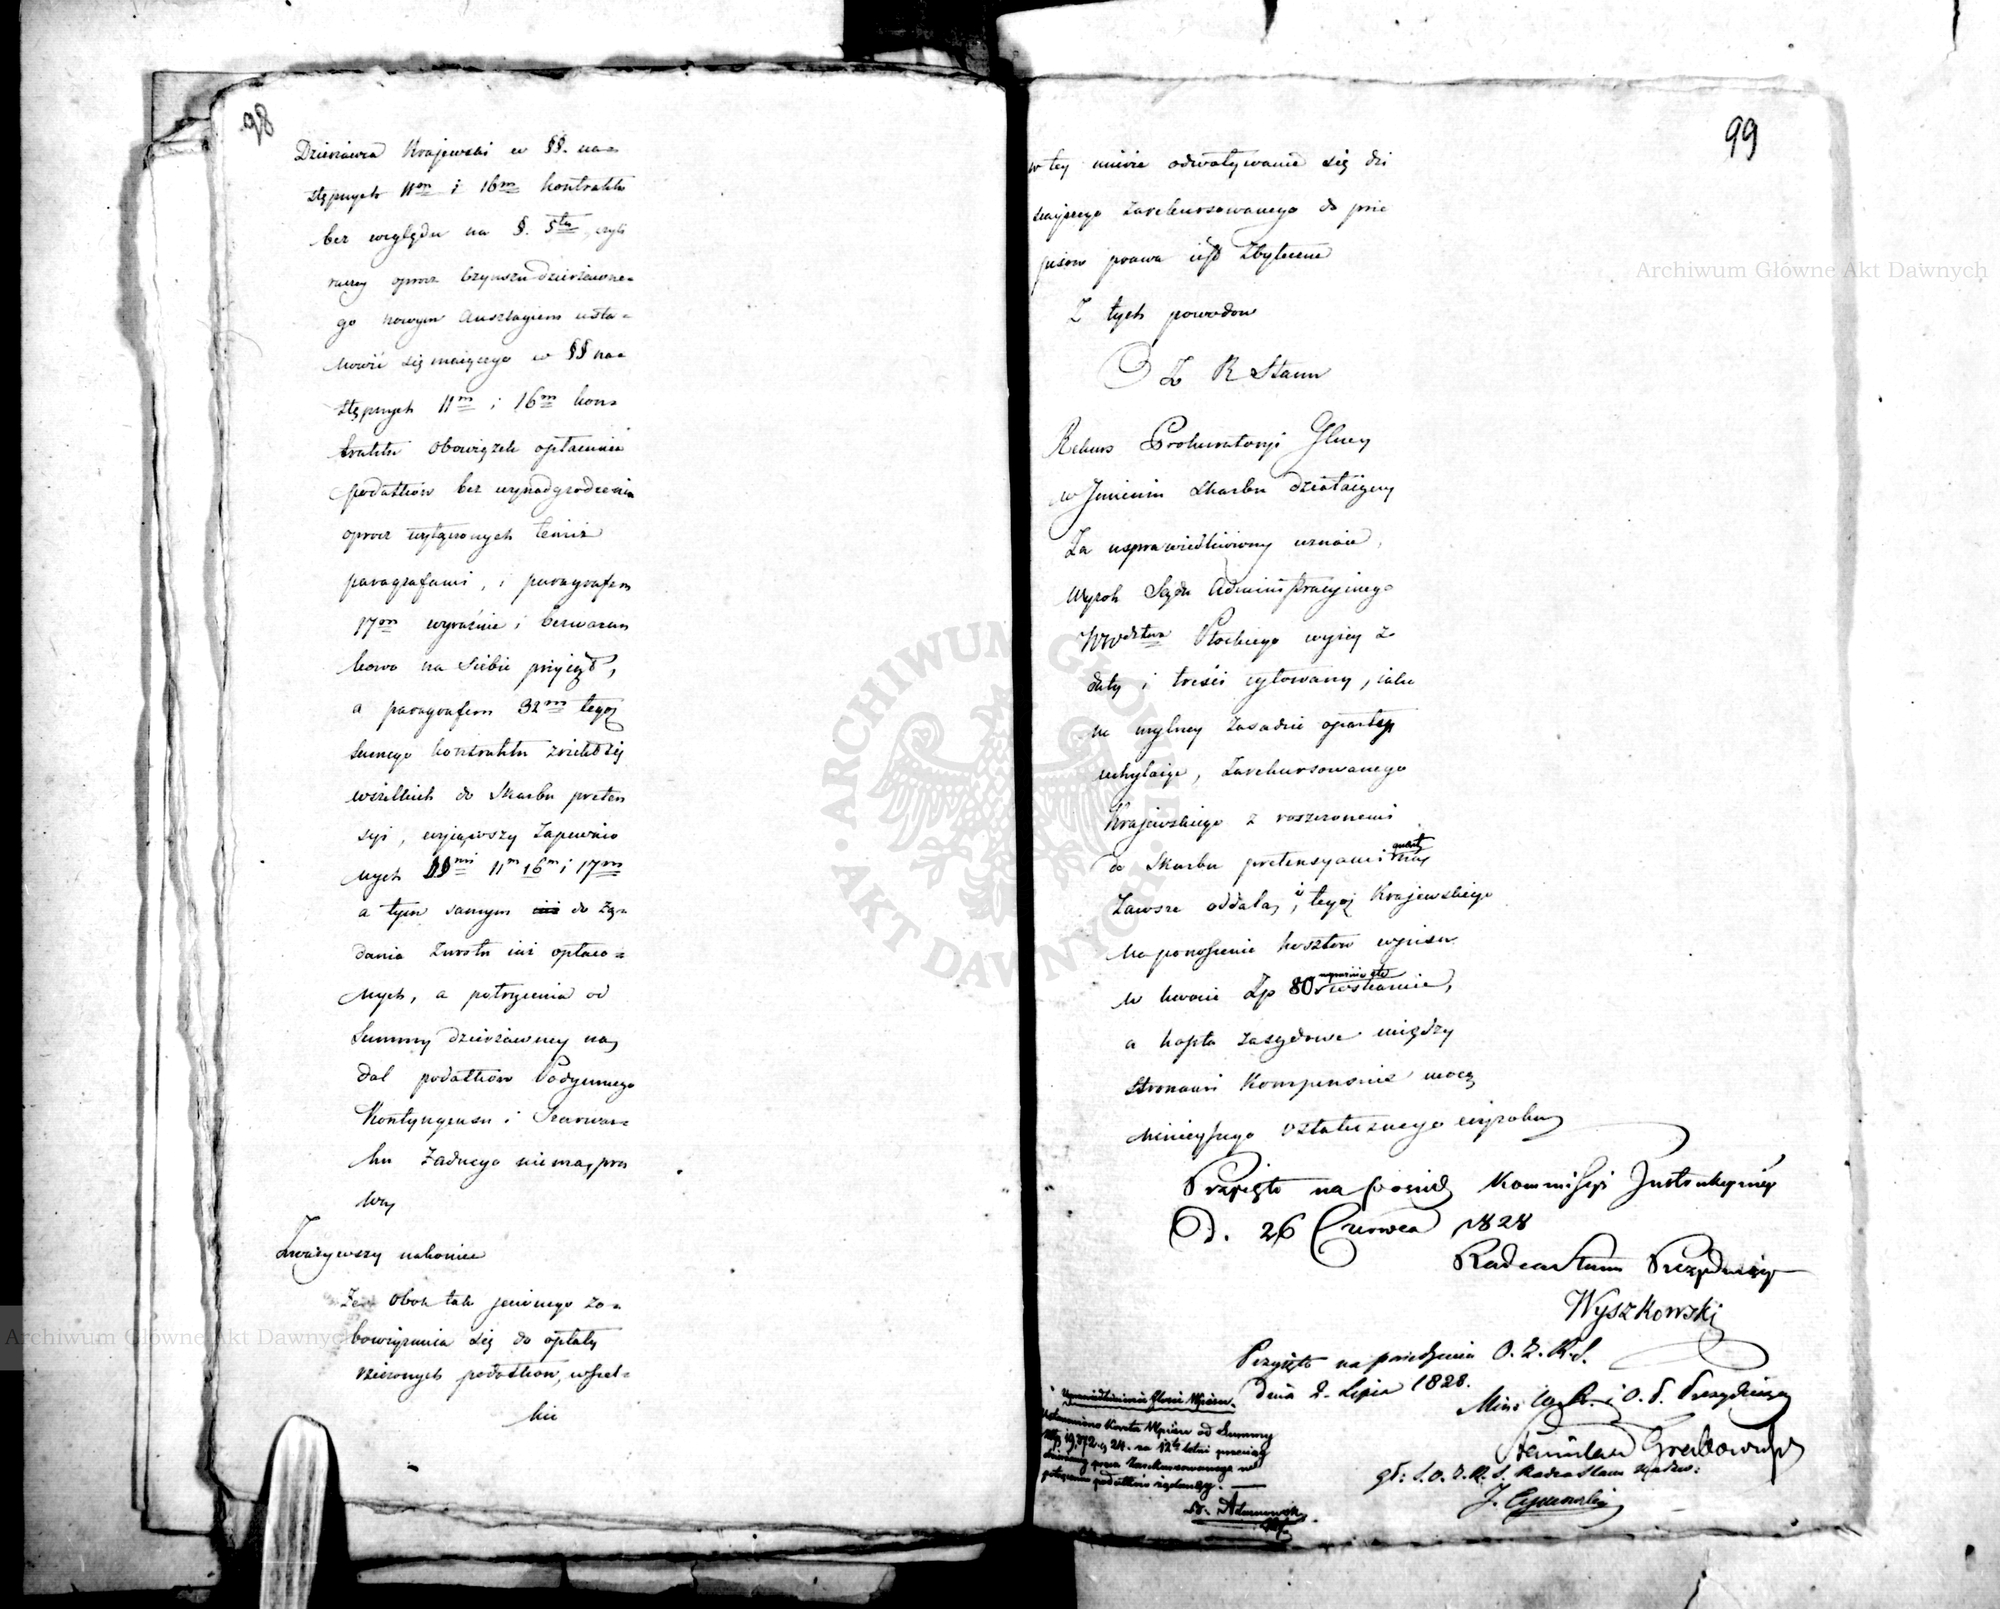 98
Dzierżawca Krajewski w §§. na=
stępnych 11m i 16m kontraktu
bez względu na §. 5ty, czyli
raczey oprócz Czynszu dzierżawne=
go nowym Anszlagiem usta=
nowić się maiącego w §§ na=
stępnych 11m i 16m kon=
traktu obowiązek opłacania
podatków bez wynadgrodzenia
oprócz wyłączonych temiż
paragrafami, i paragrafem
17m wyraźnie i bezwarun
kowo na siebie przyiął,
a paragrafem 32m tegoż
samego kontraktu zrzekł się
wszelkich do Skarbu preten
syi, wyiąwszy zapewnio
nych §§mi 11m 16m i 17m
a tym samym do żą=
dania zwrotu iuż opłaco=
nych, a potrącenia od
Summy dzierżawney na
dal podatków Podymnego
Kontyngensu i Szarwar=
ku żadnego niema pra
wa
Zważywszy nakoniec
Że obok tak jawnego zo=
bowiązania się do opłaty
rzeczonych podatków, wszel=
kie
99
w tey mierze odwoływanie się dzi
sieyszego Zarekursowanego do prze
pisów prawa iest zbyteczne
Z tych powodów
D Z R Stanu
Rekurs Prokuratoryi Glney
w Imieniu Skarbu działaiącey
Za usprawiedliwiony uznaie,
Wyrok Sądu Administracyinego
Wwdztwa Płockiego wyżey z
daty i treści cytowany, iako
na mylney zasadzie oparty
uchylaiąc, Zarekursowanego
Krajewskiego z roszczonemi
do Skarbu pretensyami
Zawsze oddala, i tegoż Krajewskiego
Na poniesienie kosztów wpisu
w kwocie Złp 80 wskazuie,
a koszta zasądowe między
stronami kompensuie mocą
ninieyszego ostatecznego wyroku
Przyięto na posiedz Kommissyi Instrukcyiney
D. 26 Czerwca 1828
Radca Stanu Prezyduiący
Wyszkowski
Przyięto na posiedzeniu O. Z. R. S.
dnia 2. Lipca 1828.
Min: W. R. i O. P. Prezyduiący
Stanisław Grabowski
J. Cymerski
Usprawiedliwienie Ilości Wpisu.
Ustanowiono Kwota Wpisu od Summy
Złp 19,372 g 24. za 12to letni przeciąg
dzierżawy przez Zarekursowanego na
potrącenie podatków żądaney.